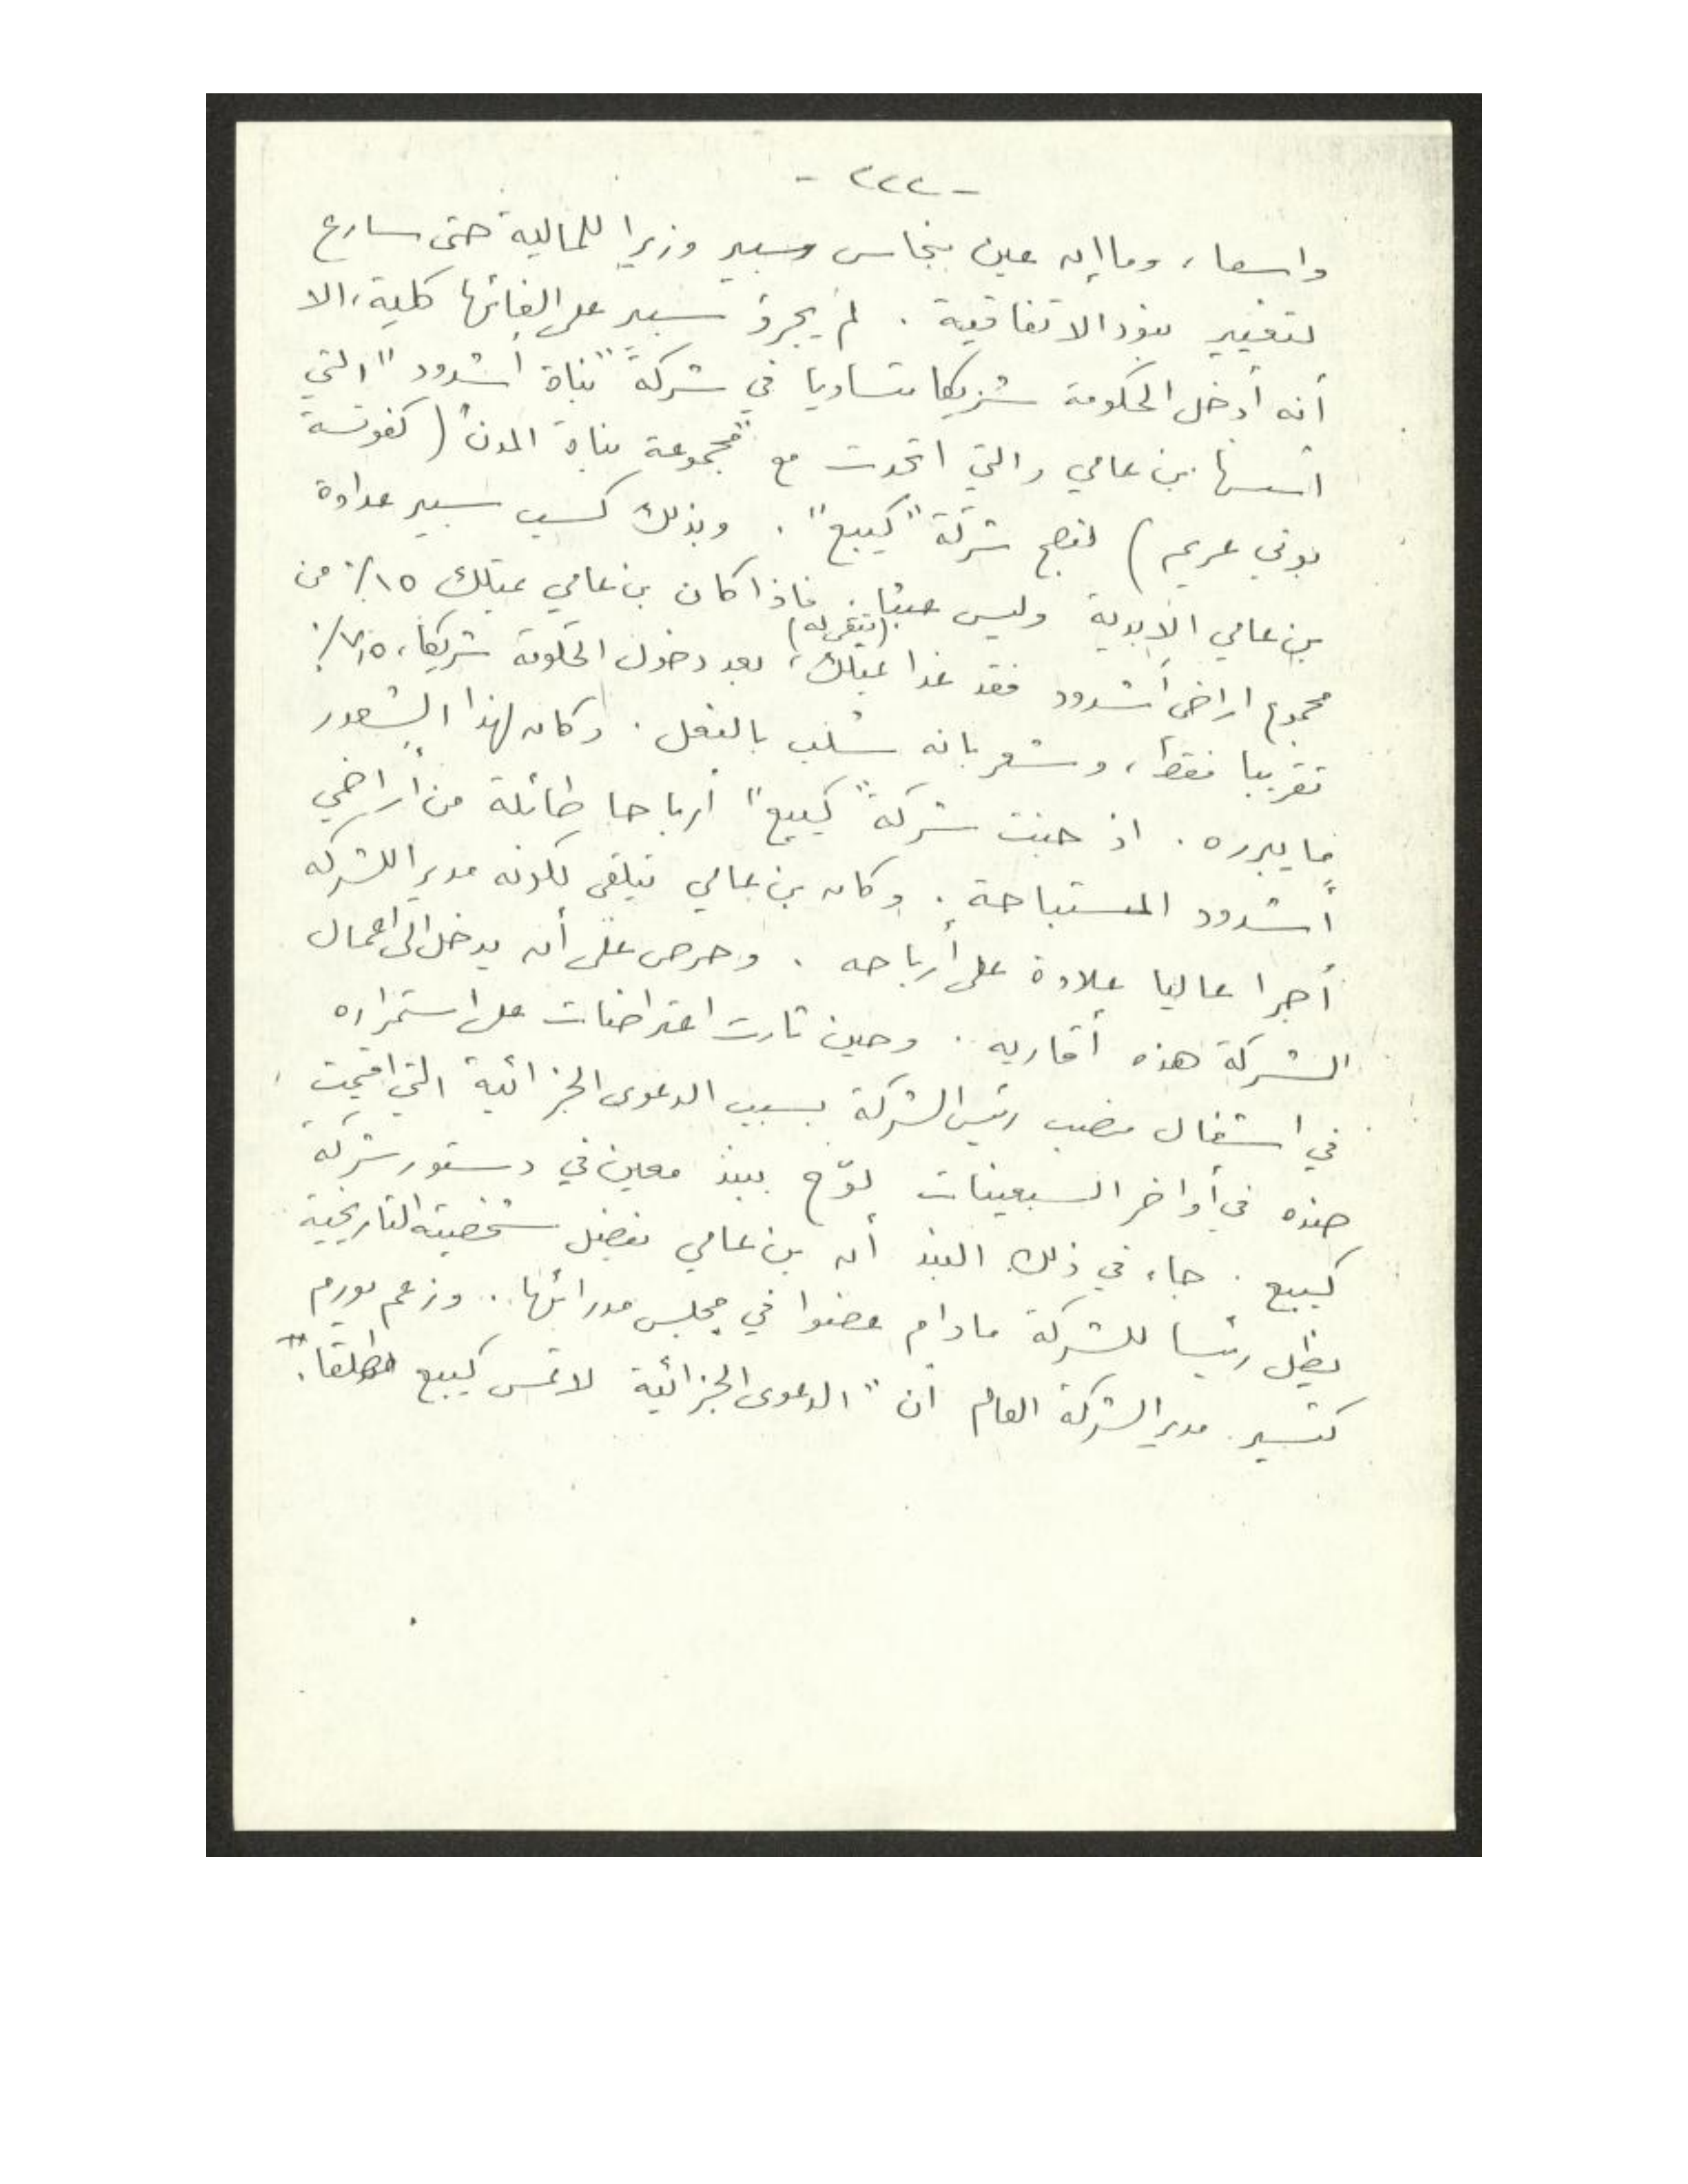 - ٢٢٢ -
واسعا، وما إن عين بنحاس سبير وزيرا للمالية حتى سارع
لتغيير بنود الاتفاقية . لم يجرؤ سبير على الغائها كلية، الا
أنه أدخل الحكومة شريكا متساويا في شركة "بناة أشدود" التي
اسسها بن عامي والتي اتحدت مع "مجموعة بناة المدن" (كفوتسة
بوني عريم) لتصبح شركة "كيبع" . وبذلك كسب سبير عداوة
بن عامي الأبدية وليس عبثا. فاذا كان بن عامي يمتلك ١٥٪ من
(تبقى له)
مجموع اراضي أشدود فقد غدا يمتلك، بعد دخول الحكومة شريكا، ٧,٥٪
تقريبا فقط، وشعر بانه سُلب بالفعل . وكان لهذا الشعور
ما يبرره . اذ جنت شركة "كيبع" أرباحا طائلة من أراضي
أشدود المستباحة . وكان بن عامي يتلقى لكونه مديرا للشركة
أجرا عاليا علاوة على أرباحه . وحرص على أن يدخل الى اعمال
الشركة هذه أقاربه . وحين ثارت اعتراضات على استمراره
في اشغال منصب رئيس الشركة بسبب الدعوى الجزائية التي اقيمت
ضده في أواخر السبعينات لوّح ببند معين في دستور شركة
كيبع . جاء في ذلك البند أن بن عامي بفضل شخصيته التاريخية
يظل رئيسا للشركة مادام عضوا في مجلس مدرائها . وزعم يورم
كتسير مدير الشركة العام أن "الدعوى الجزائية لا تمس كيبع مطلقا".